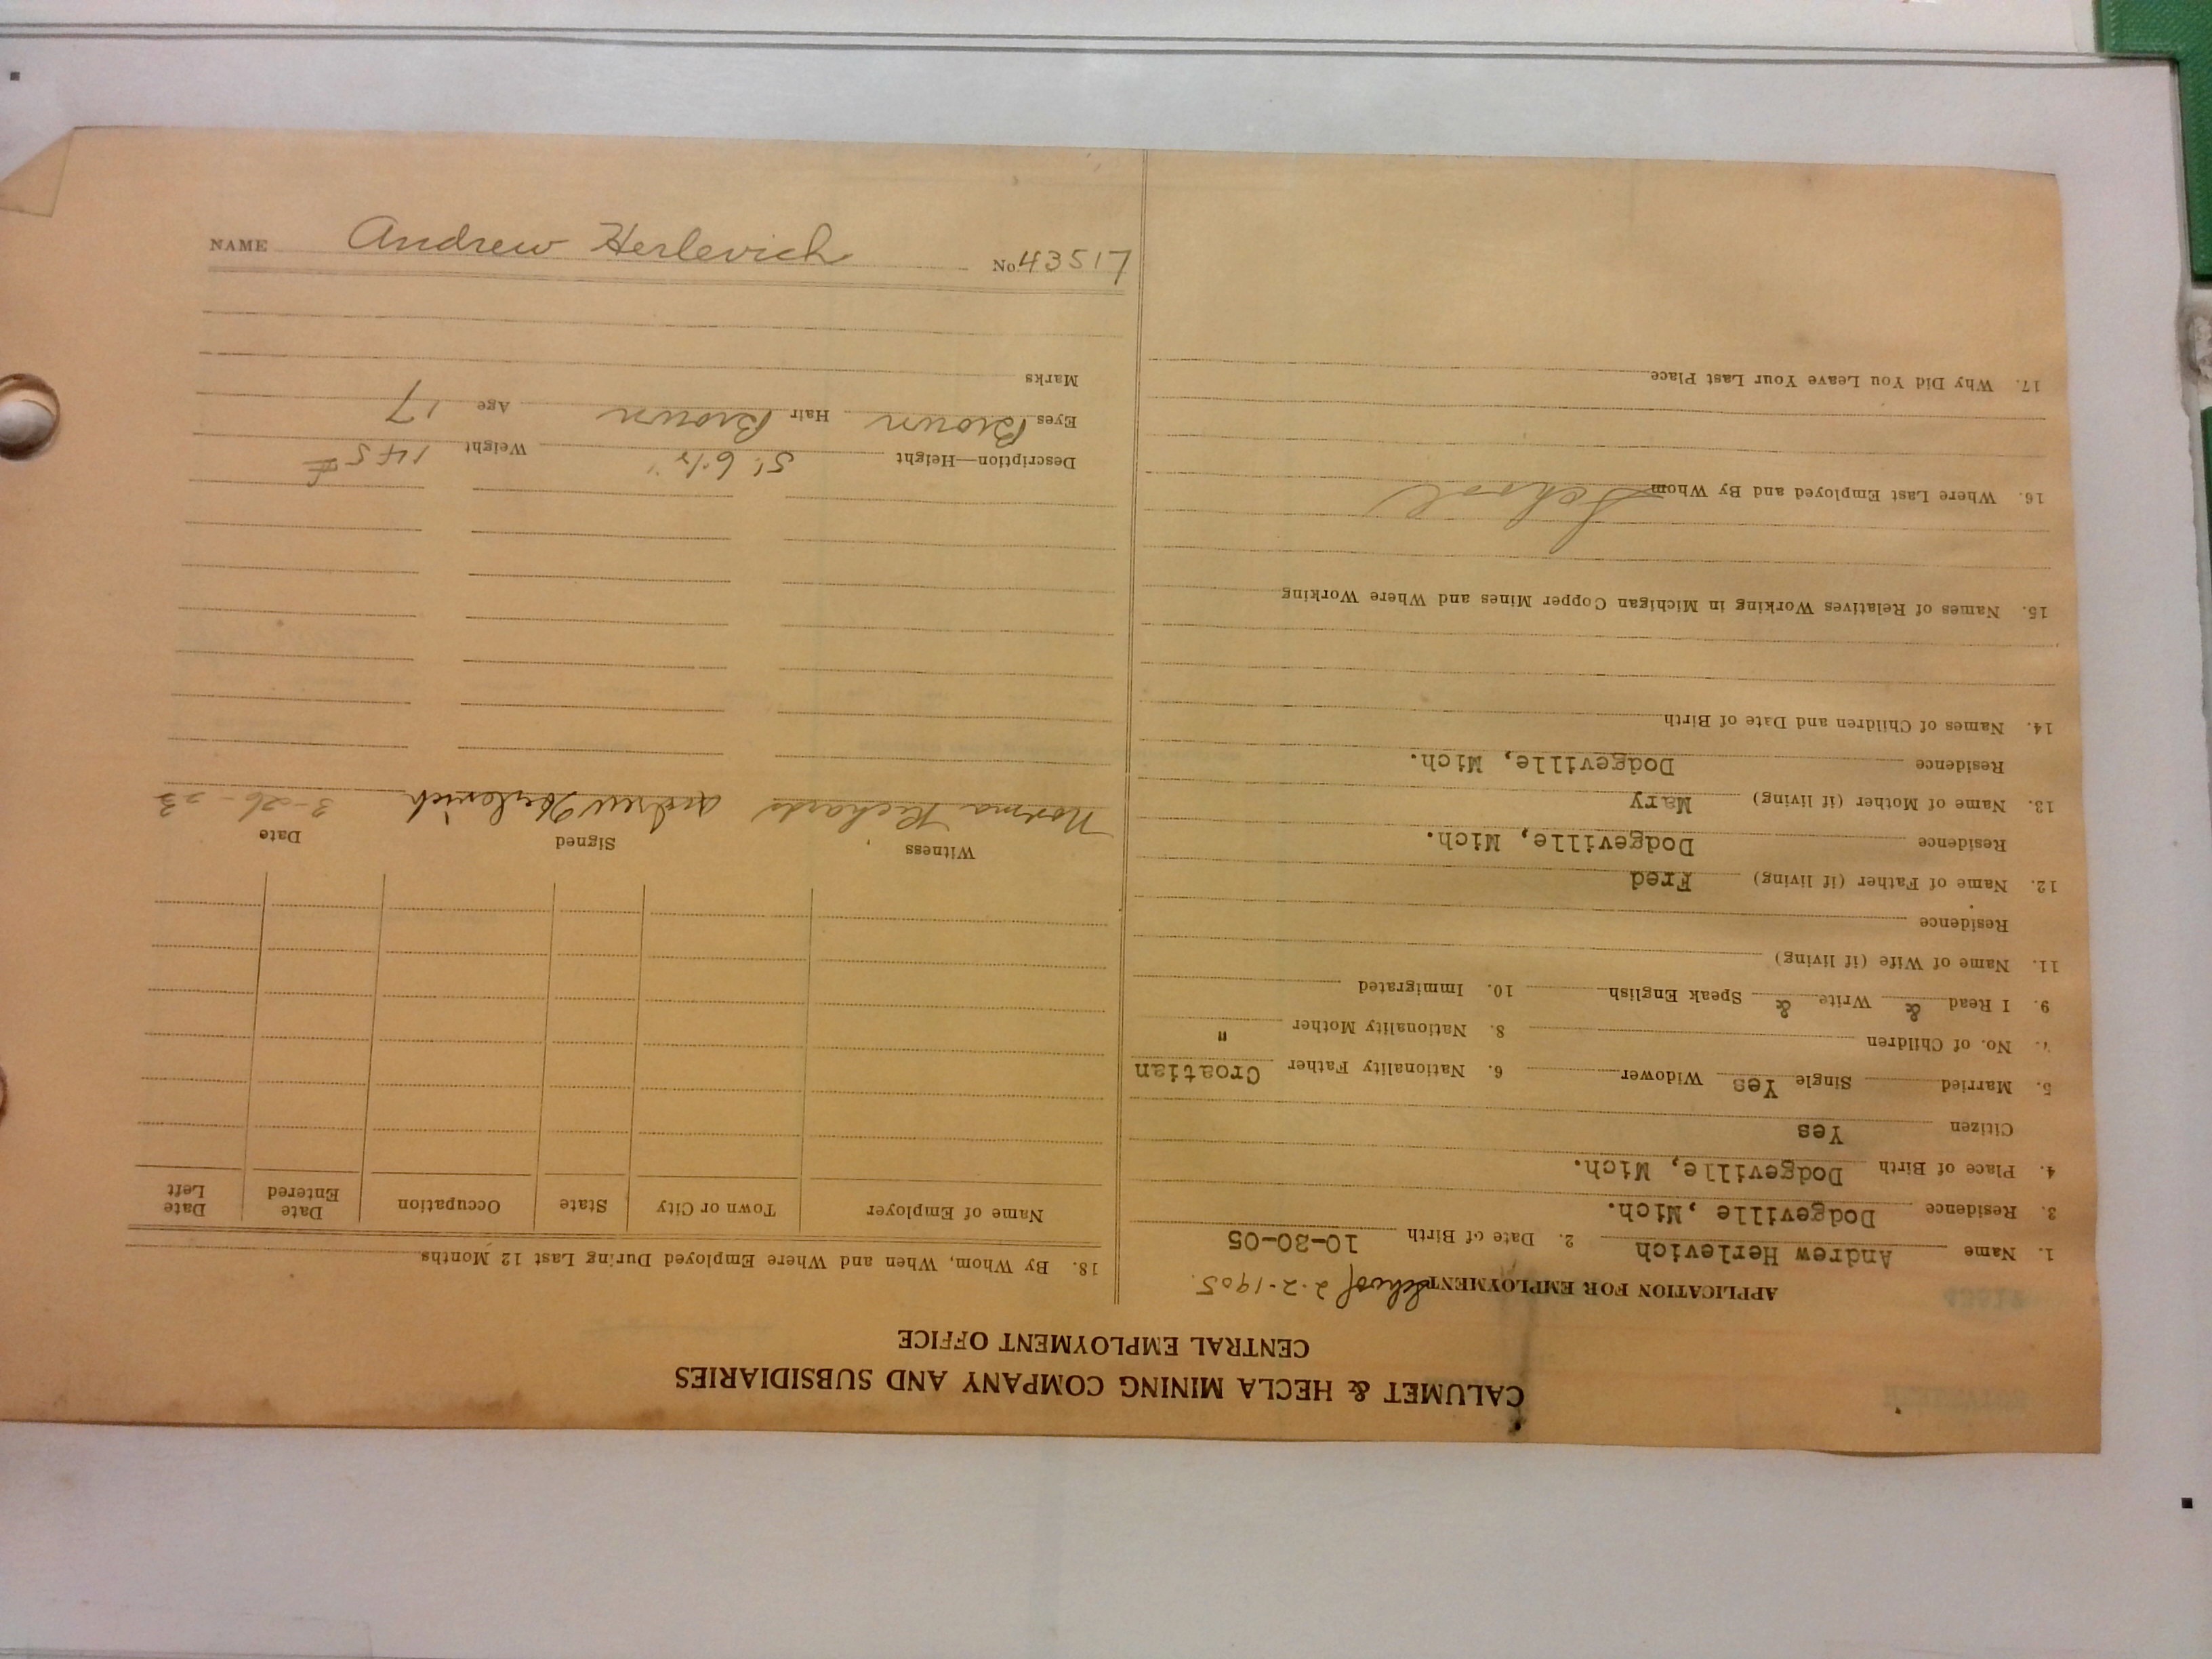 CALUMET & HECLA MINING COMPANY AND SUBSIDIARIES
CENTRAL EMPLOYMENT OFFICE
APPLICATION FOR EMPLOYMENT School 2-2-1905.
1. Name Andrew Herlevich 2. Date of Birth 10-30-05
3. Residence Dodgeville ,Mich.
4. Place of Birth Dodgeville, Mich.
Citizen Yes
5. Married Single Yes Widower 6. Nationality Father Croatian
7. No. of Children 8. Nationality Mother "
9. I Read & Write & Speak English 10. Immigrated
11. Name of Wife (if living)
Residence
12. Name of Father (if living) Fred
Residence Dodgeville, Mich.
13. Name of Mother (if living) Mary
Residence Dodgeville, Mich.
14. Names of Children and Date of Birth
15. Names of Relatives Working in Michigan Copper Mines and Where Working
16. Where Last Employed and By Whom School
17. Why Did You Leave Your Last Place
18. By Whom, When and Where Employed During Last 12 Months
Name of Employer Town or City State Occupation Date Entered Date Left
Witness Signed Date
Norma Richards Andrew Herlevich 3-26-23
Description—Height 5' 6½" Weight 145#
Eyes Brown Hair Brown Age 17
Marks
NAME Andrew Herlevich No. 43517